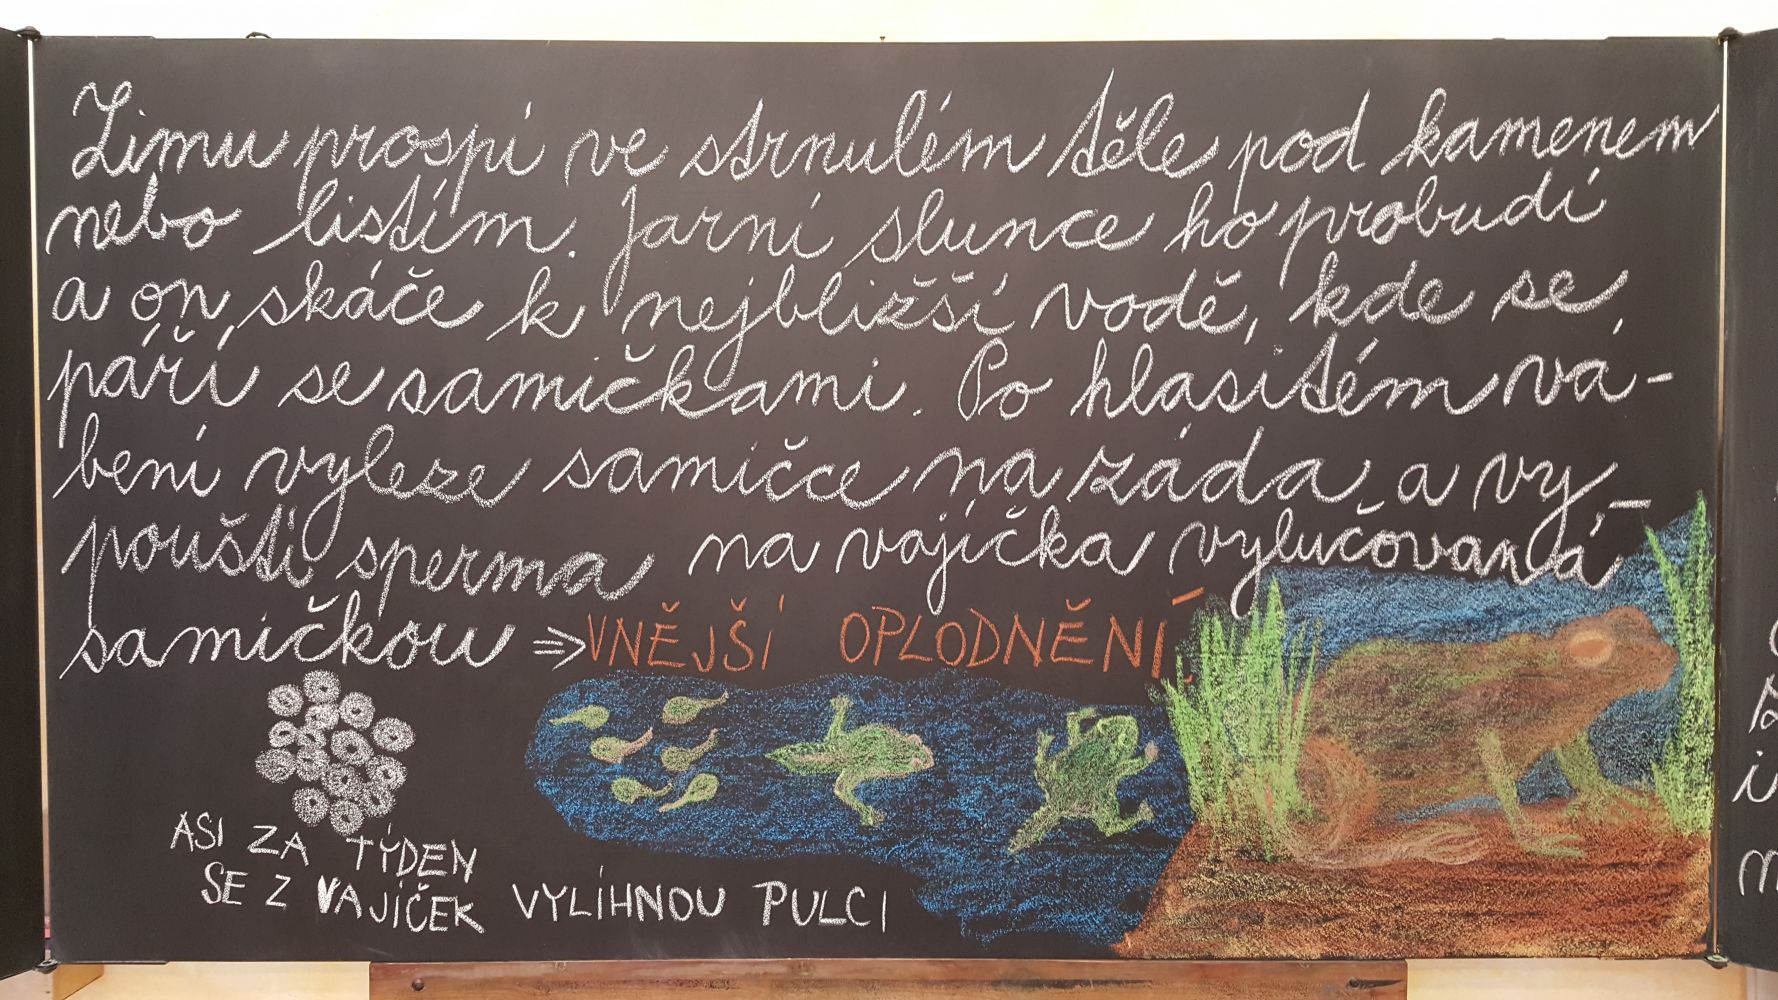 Zimu prospí ve strnulém těle pod kamenem
nebo listím. Jarní slunce ho probudí
a on skáče k nejbližší vodě, kde se
páří se samičkami. Po hlasitém vá-
bení vyleze samičce na záda a vy-
pouští sperma na vajíčka vylučovaná
samičkou ⇒ VNĚJŠÍ OPLODNĚNÍ
ASI ZA TÝDEN
SE Z VAJÍČEK VYLÍHNOU PULCI